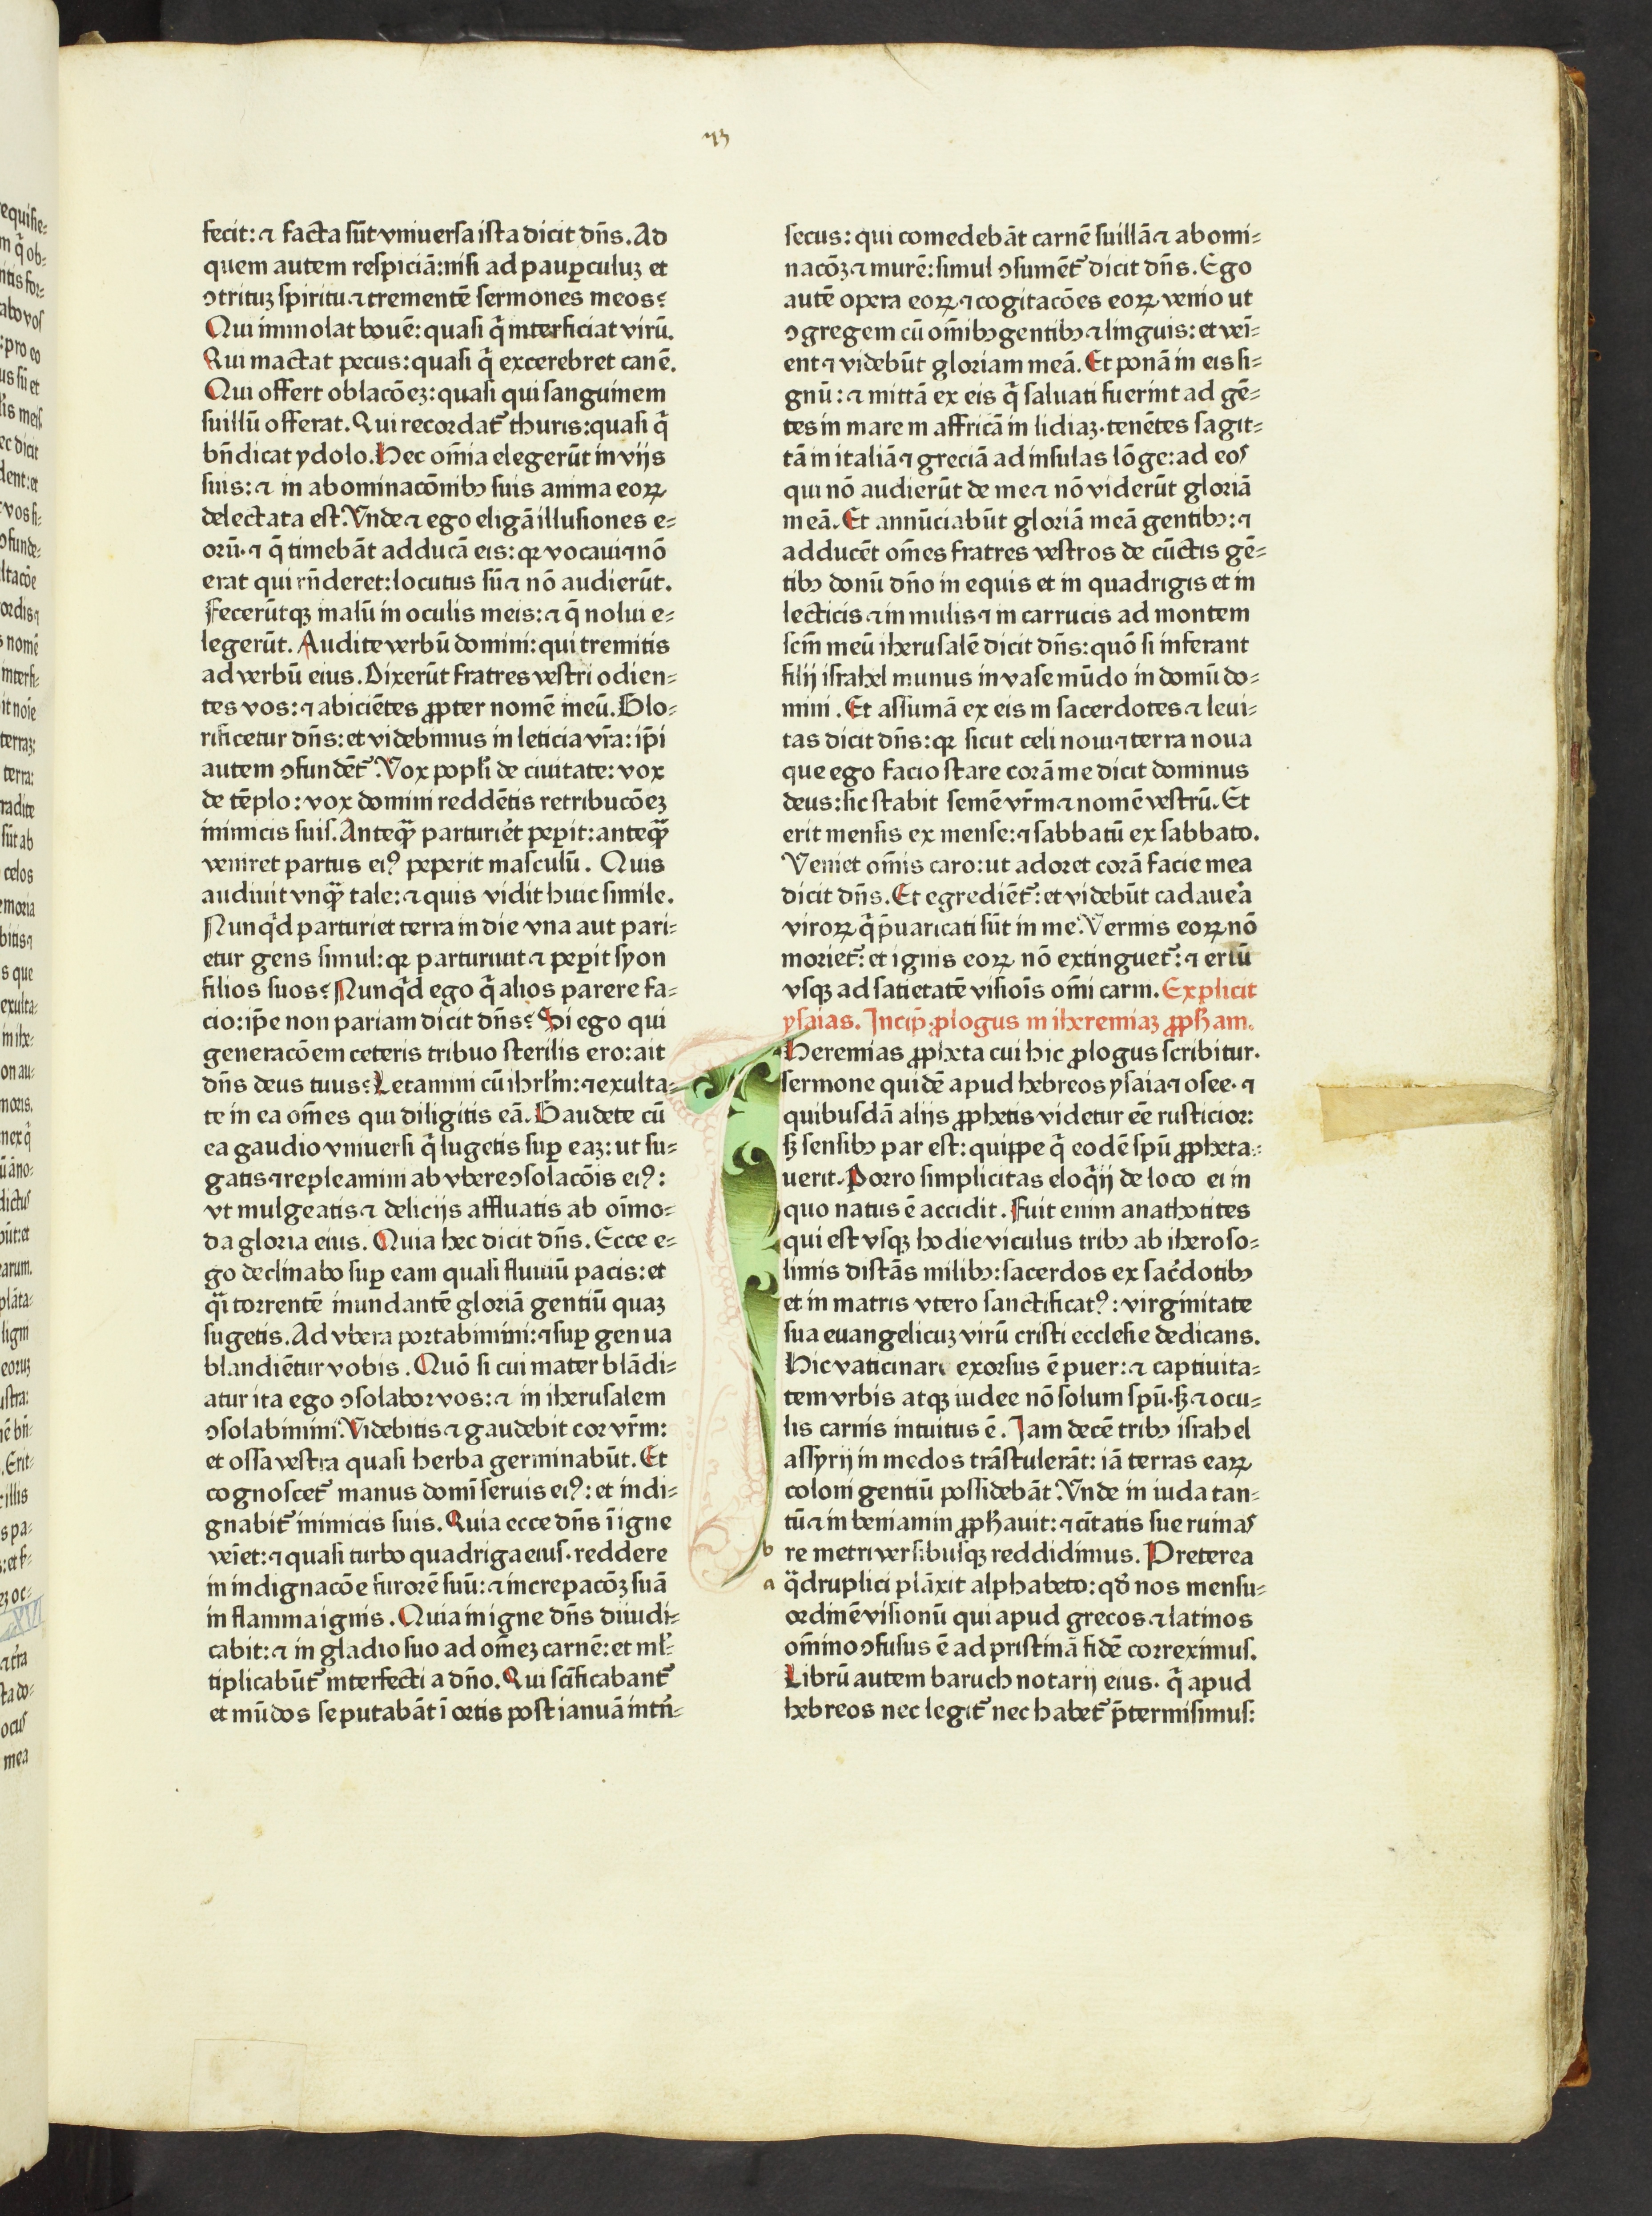 73
fecit: ⁊ facta sūt vniuersa ista dicit dn̄s. Ad
quem autem respiciā: nisi ad paupculuz et
ↄtrituz spiritu ⁊ trementē sermones meos?
Qui immolat bouē: quasi q̄ interficiat virū.
Qui mactat pecus: quasi q̄ excerebret canē.
Qui offert oblacōez: quasi qui sanguinem
suillū offerat. Qui recordat᷑ thuris: quasi q̄
bn̄dicat ydolo. Hec om̄ia elegerūt in vijs
suis: ⁊ in abominacōnibꝫ suis anima eoꝝ
delectata est. Vnde ⁊ ego eligā illusiones e-
orū. ⁊ q̄ timebāt adducā eis: qꝛ vocaui ⁊ nō
erat qui rn̄deret: locutus sū ⁊ nō audierūt.
Fecerūtqꝫ malū in oculis meis: ⁊ q̄ nolui e-
legerūt. Audite verbū domini: qui tremitis
ad verbū eius. Dixerūt fratres vestri odien-
tes vos: ⁊ abiciētes ꝓpter nomē meū. Glo-
rificetur dn̄s: et videbimus in leticia vr̄a: ip̄i
autem ↄfundēt᷑. Vox popl̄i de ciuitate: vox
de tēplo: vox domini reddētis retribucōez
inimicis suis. Anteqꝫ̄ parturiet peꝑit: anteqꝫ̄
veniret partus eiꝰ peperit masculū. Quis
audiuit vnqꝫ̄ tale: ⁊ quis vidit huic simile.
Nunq̄d parturiet terra in die vna aut pari-
etur gens simul: qꝛ parturiuit ⁊ peꝑit syon
filios suos? Nunq̄d ego q̄ alios parere fa-
cio: ip̄e non pariam dicit dn̄s? Si ego qui
generacōem ceteris tribuo sterilis ero: ait
dn̄s deus tuus? Letamini cū ihrl̄m: ⁊ exulta-
te in ea om̄es qui diligitis eā. Gaudete cū
ea gaudio vniuersi q̄ lugetis suꝑ eaz: ut su-
gatis ⁊ repleamini ab vbere ↄsolacōis eiꝰ:
vt mulgeatis ⁊ delicijs affluatis ab oīmo-
da gloria eius. Quia hec dicit dn̄s. Ecce e-
go declinabo suꝑ eam quasi fluuiū pacis: et
q̄i torrentē inundantē gloriā gentiū quaz
sugetis. Ad vbera portabimini: ⁊ suꝑ genua
blandiētur vobis. Quō si cui mater blādi-
atur ita ego ↄsolabor vos: ⁊ in iherusalem
ↄsolabimini. Videbitis ⁊ gaudebit cor vr̄m:
et ossa vestra quasi herba germinabūt. Et
cognoscet᷑ manus domī seruis eiꝰ: et indi-
gnabit᷑ inimicis suis. Quia ecce dn̄s ī igne
veīet: ⁊ quasi turbo quadriga eius. reddere
in indignacōe furorē suū: ⁊ increpacōꝫ suā
in flamma ignis. Quia in igne dn̄s diiudi-
cabit: ⁊ in gladio suo ad om̄ez carnē: et ml̄-
tiplicabūt᷑ interfecti a dn̄o. Qui sc̄ificabant᷑
et mūdos se putabāt ī ortis post ianuā intr̄-
secus: qui comedebāt carnē suillā ⁊ abomi-
nacōꝫ ⁊ murē: simul ↄsument᷑ dicit dn̄s. Ego
autē opera eoꝝ ⁊ cogitacōes eoꝝ venio ut
ↄgregem cū om̄ibꝫ gentibꝫ ⁊ linguis: et veī-
ent ⁊ videbūt gloriam meā. Et ponā in eis si-
gnū: ⁊ mittā ex eis q̄ saluati fuerint ad gē-
tes in mare in affricā in lidiaz. tenētes sagit-
tā in italiā ⁊ greciā ad insulas lōge: ad eos
qui nō audierūt de me ⁊ nō viderūt gloriā
meā. Et annūciabūt gloriā meā gentibꝫ: ⁊
adducēt om̄es fratres vestros de cūctis gē-
tibꝫ donū dn̄o in equis et in quadrigis et in
lecticis ⁊ in mulis ⁊ in carrucis ad montem
scm̄ meū iherusalē dicit dn̄s: quō si inferant
filij israhel munus in vase mūdo in domū do-
mini. Et assumā ex eis in sacerdotes ⁊ leui-
tas dicit dn̄s: qꝛ sicut celi noui ⁊ terra noua
que ego facio stare corā me dicit dominus
deus: sic stabit semē vr̄m ⁊ nomē vestrū. Et
erit mensis ex mense: ⁊ sabbatū ex sabbato.
Veniet om̄is caro: ut adoret corā facie mea
dicit dn̄s. Et egredient᷑: et videbūt cadauera
viroꝝ q̄ p̄uaricati sūt in me. Vermis eoꝝ nō
moriet᷑: et ignis eoꝝ nō extinguet᷑: ⁊ erūt
vsqꝫ ad satietatē visiōis om̄i carni. Explicit
ysaias. Incip̄. ꝓlogus in iheremiaz ꝓpham.
Iheremias ꝓpheta cui hic ꝓlogus scribitur.
sermone quidē apud hebreos ysaia ⁊ osee. ⁊
quibusdā alijs ꝓphetis videtur eē rusticior:
sꝫ sensibꝫ par est: quippe q̄ eodē spū ꝓpheta-
uerit. Porro simplicitas eloq̄ij de loco ei in
quo natus ē accidit. Fuit enim anathotites
qui est vsqꝫ hodie viculus tribꝫ ab iheroso-
limis distās milibꝫ: sacerdos ex sac̄dotibꝫ
et in matris vtero sanctificatꝰ: virginitate
sua euangelicuz virū cristi ecclesie dedicans.
Hic vaticinari exorsus ē puer: ⁊ captiuita-
tem vrbis atqꝫ iudee nō solum spū. sꝫ ⁊ ocu-
lis carnis intuitus ē. Jam decē tribꝫ israhel
assyrij in medos trāstulerāt: iā terras eaꝝ
coloni gentiū possidebāt. Vnde in iuda tan-
tū ⁊ in beniamin ꝓphauit: ⁊ cītatis sue ruinas
b re metri versibusqꝫ reddidimus. Preterea
a q̄druplici plāxit alphabeto: qd̄ nos mensu-
ordinē visionū qui apud grecos ⁊ latinos
om̄ino ↄfusus ē ad pristinā fidē correximus.
Librū autem baruch notarij eius. q̄ apud
hebreos nec legit᷑ nec habet᷑ p̄termisimus: